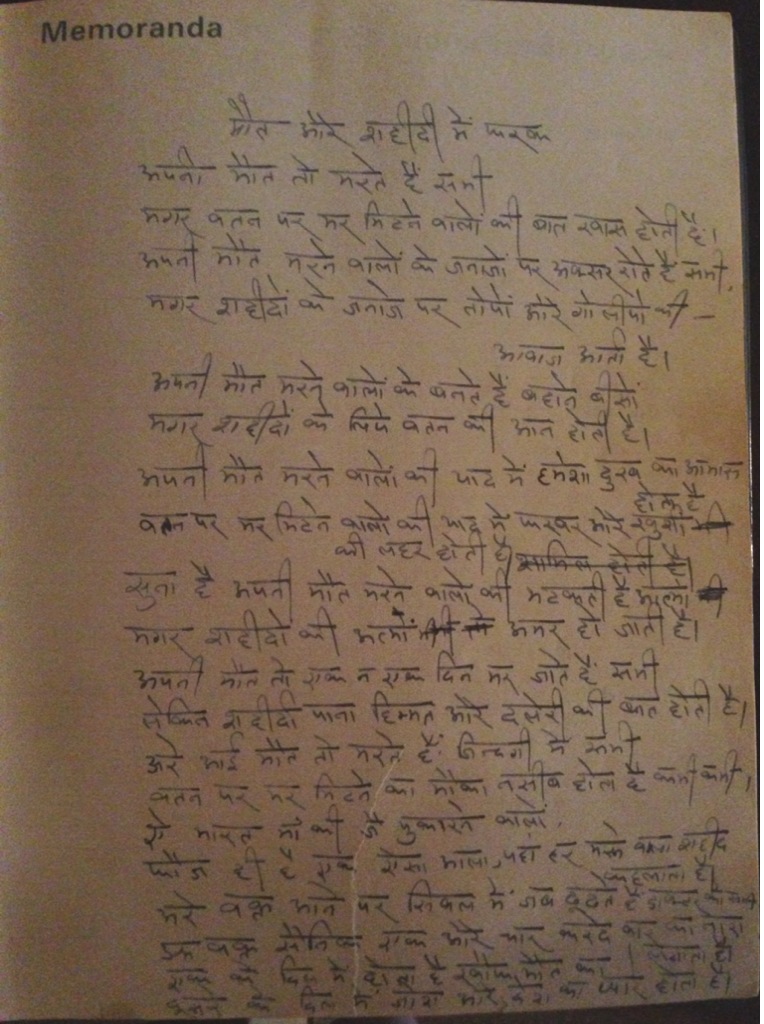 Memoranda
मौत और शहीदी में फरक
अपनी मौत तो मरते हैं सभी
मगर वतन पर मर मिटने वालों की बात खास होती है।
अपनी मौत मरने वालों के जनाजों पर अक्सर रोते हैं सभी,
मगर शहीदों के जनाजे पर तोपों और गोलीयों की –
आवाज आती है।
अपनी मौत मरने वालों के बनते हैं बहोत
मगर शहीदों के लिये वतन की आन होती है।
अपनी मौत मरने वालों की याद में हमेशा दुख का आभास
होता है
वतन पर मर मिटने वालों की याद में फखर और खुशी
की लहर होती है
सुना है अपनी मौत मरने वालों की भटकती है
मगर शहीदों की अत्मां अमर हो जाती है।
अपनी मौत तो एक न एक दिन मर जाते हैं सभी
लेकिन शहीदी पाना हिम्मत और दलेरी की बात होती है।
अरे भाई मौत तो मरते हैं जिन्दगी में सभी
वतन पर मर मिटने का मौका नसीब होता है कभी कभी,
भारत माँ की जै पुकारने वालों,
फौज ही है एक ऐसा यहां हर मरने वाला शहीद
कहलाता है।
वक्त आने पर सिवल में जब
एक सैनिक एक और चार कर
के दिल में होता है मौत का
के दिल में और देश का प्यार होता है।